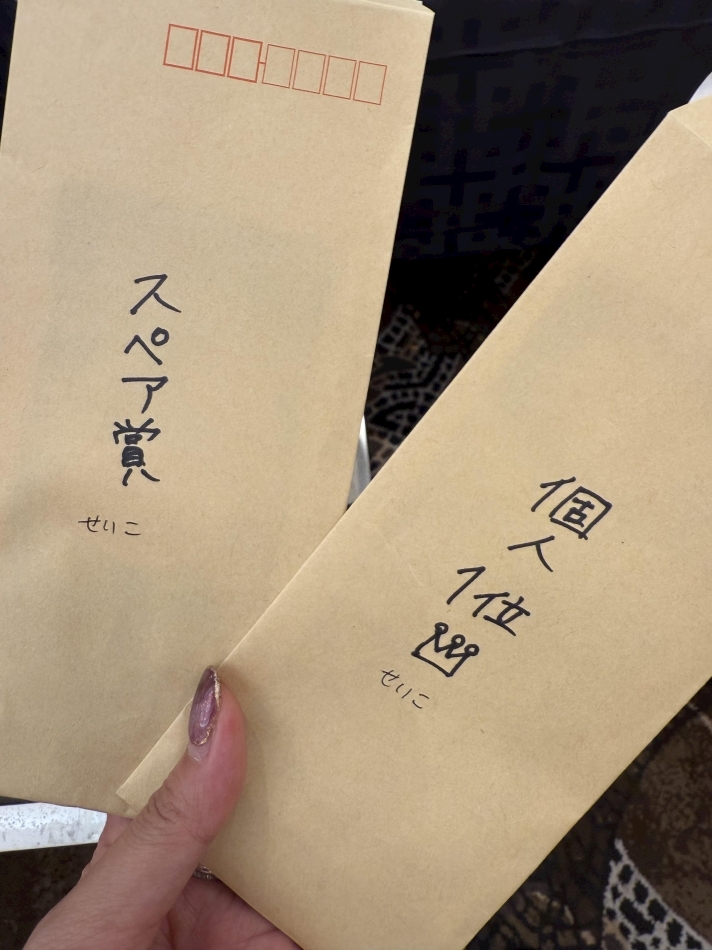 スペア賞
せいこ
個人
1位
せいこ